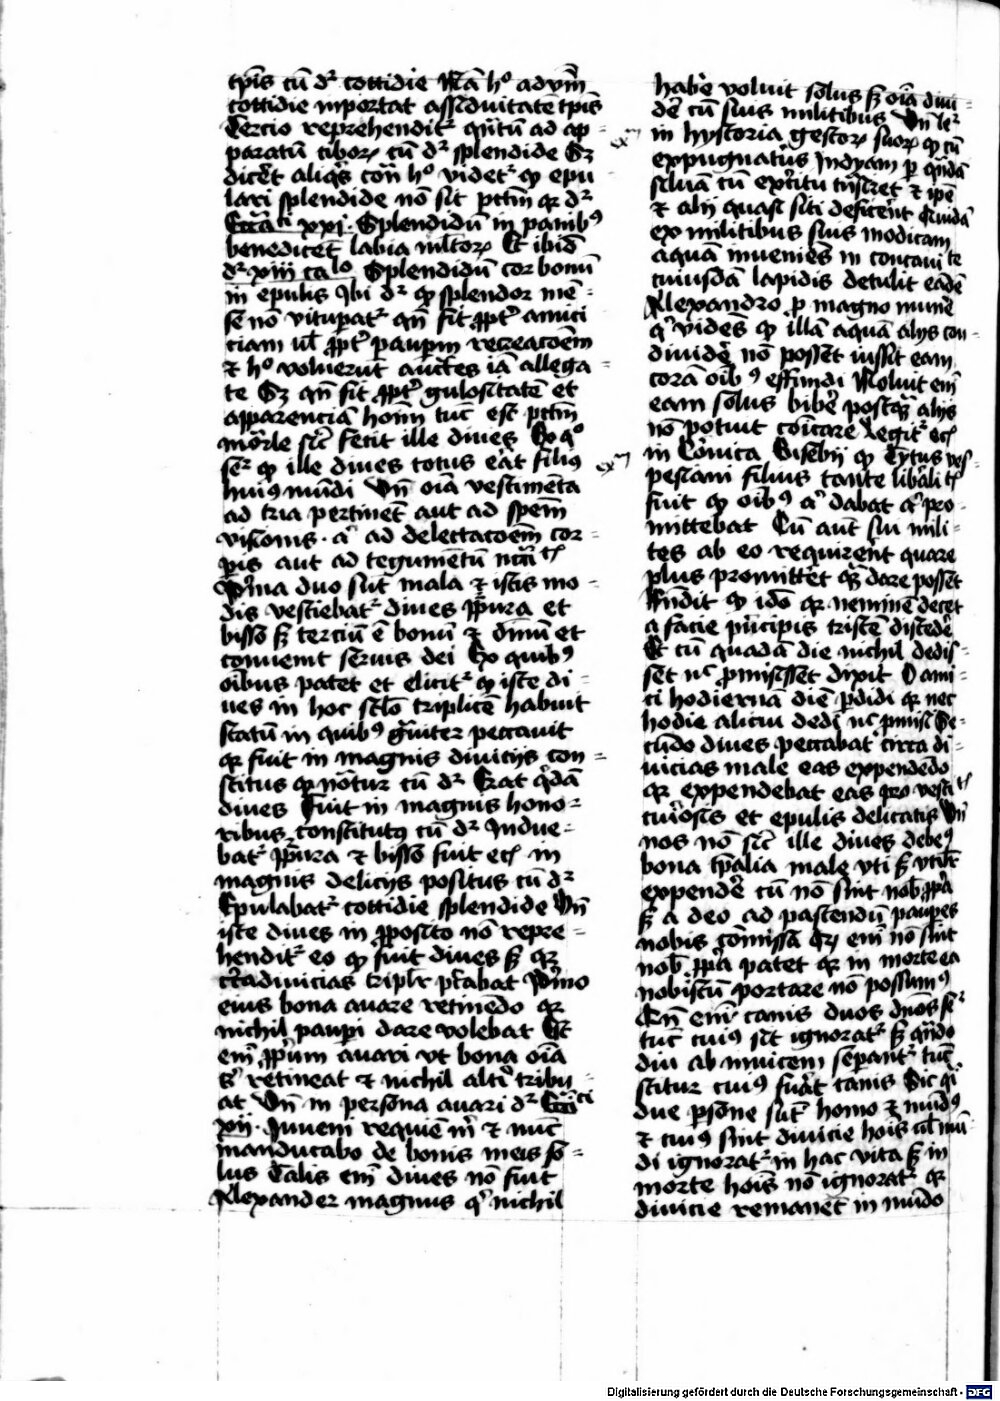 tpīs cū dr̄ cottidie Nā hº adv̄m
cottidie inportat assiduitatē tpīs
Tercio reprehendit² q̄ntū ad ap-
paratū ciboꝝ cū dr̄ splendide Sꝫ
dicēt aliq̄s cōn hº videt² ꝙ epu
lari splendide nō sit pctm̄ qꝛ dr̄
Ecc̄ci xxxj. Splendidū in panibꝰ
benedicēt labia ml̄toꝝ Et ibid̄
dr̄ xiii caº Splendidū cor bonū
in epulis vbi dr̄ ꝙ splendor mē-
se nō vitupat² qn̄ fit ꝓpt² amici
ciam vl̄ ꝓpt² pauꝑm recreacōem
⁊ hº voluerūt auctes iā allega-
te Sꝫ qn̄ fit ꝓpt² gulositatē et
apparenciā hom̄ tūc est pctm̄
mōrle sic̄ fecit ille diues Ex qº
seq² ꝙ ille diues totus erat filiꝰ
huiꝰ mūdi Vn̄ oīa vestimēta
ad tria pertinēt aut ad spēm
visionis. aᵗ ad delectacōem cor-
pis aut ad tegumētū
Prima duo sūt mala ⁊ istis mo-
dis vestiebat² diues ꝑpura et
bisso sꝫ terciū ē bonū ⁊ et
conuenit seruis dei Ex quibꝰ
oībus patet et elicit² ꝙ iste di-
ues in hoc sclō triplicē habuit
statū in quibꝰ gͣuiter peccauit
qꝛ fuit in magnis diuicijs con-
stitus qꝛ nōtur cū dr̄ Erat q̄dā
diues Fuit in magnis hono-
ribus constitutꝰ cū dr̄ Indue-
bat² ꝑpura ⁊ bisso fuit eciā in
magnis delicijs positus cū dr̄
Epulabat² cottidie splendide Vn̄
iste diues in ꝓposito nō repre-
hendit² eo ꝙ fuit diues sꝫ qꝛ
cͣ diuicias tiplr̄ pctabat Primo
eius bona auare retinēdo qꝛ
nichil pauꝑi dare volebat Est
em̄ ꝓpum auari vt bona oīa
sᵢ retineat ⁊ nichil altⁱ tribu-
at Vn̄ in persona auari dr̄ Ecc̄ci
xij. Inueni requiē m̄ ⁊ nūc
manducabo de bonis meis so-
lus Talis em̄ diues nō fuit
Alexander magnus qⁱ nichil
habē voluit solus sꝫ oīa diui-
dē cū suis militibus Vn̄ le²
in hystoria gestoꝝ suoꝝ ꝙ cū
expugnatus Indyam ꝑ q̄ndā
siluā cū exc̄itu tn̄siret ⁊ ip̄e
⁊ alij quasi siti deficeēt Quidā
ex militibus suis modicam
aquam inueniēs in concaui te
cuiusdā lapidis detulit eādē
Alexandro ꝑ magno mune
qⁱ vidēs ꝙ illā aquā alijs con-
diuidē nō posset iussit eam
corā oībꝰ effundi Noluit em̄
eam solus bibē postq̄ alijs
nō potuit cōicare Legit² eciā
in Cronica Eusebij ꝙ Tytus ves-
pesiani filius tante libalit̄
fuit ꝙ oībꝰ aᵗ dabat aᵗ pro-
mittebat Cū aūt sui mili-
tes ab eo requirēnt quare
plus promittēt q̄ dare posset
Rn̄dit ꝙ idō qꝛ neminē decet
a facie pⁱncipis tristē discedē
Et cū quadā die nichil dedis-
set nᶜ ꝓmisisset dixit O ami-
ci hodiernā diē ꝑdidi qꝛ nec
hodie alicui dedi nᶜ ꝓmisi Se-
cūdo diues peccabat circa di-
uicias male eas expendēdo
qꝛ expendebat eas pro vestiᵗ
cuⁱosis et epulis delicatis Vn̄
nos nō sic̄ ille diues debeꝰ
bona tꝑalia male vti sꝫ
expendē cū nō sint nob̄ ꝓpͣa
sꝫ a deo ad pascendū paupes
nobis cōmissa Qꝛ em̄ nō sint
nob̄ ꝓpͣa patet qꝛ in morte ea
nobiscū portare nō possumꝰ
Qn̄ em̄ canis duos dnōs se²
tūc cuiꝰ sit ignorat² sꝫ qn̄do
diu ab inuicem sepant² tūc
scitur cuiꝰ fuᵃt canis Sic qⁱ
due psone sūt homo ⁊ mūdꝰ
⁊ cuiꝰ sint diuicie hoīs vl̄ mū
di ignorat² in hac vita sꝫ in
morte hoīs nō ignorat² qꝛ
diuicie remanēt in mūdo
Digitalisierung gefördert durch die Deutsche Forschungsgemeinschaft - DFG